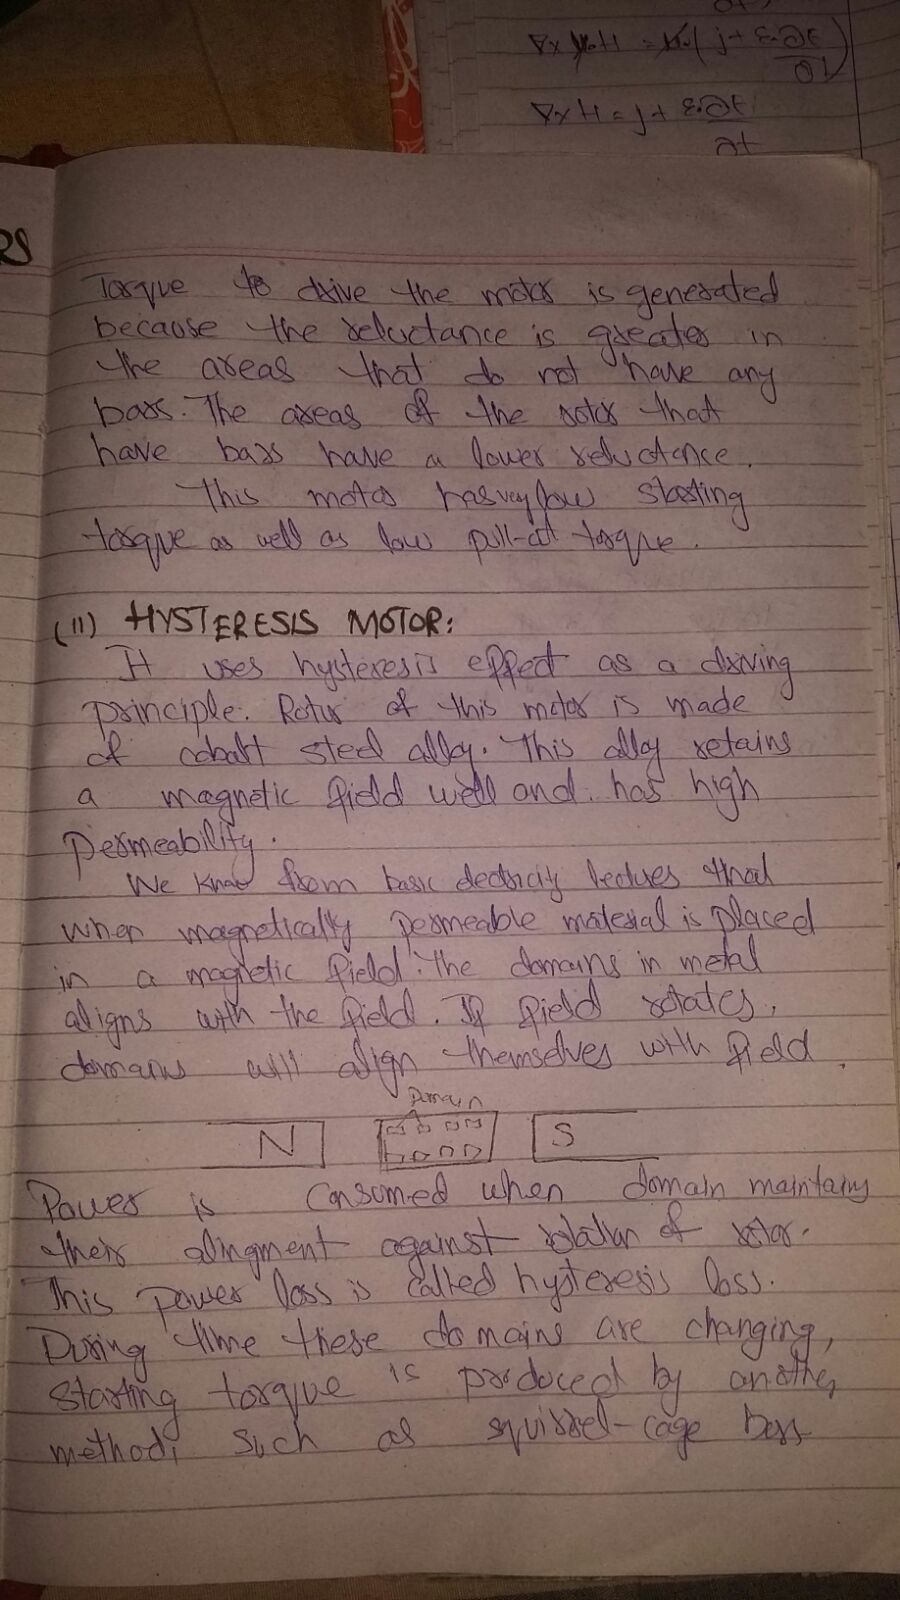 Torque to drive the motor is generated
because the reluctance is greater in
the areas that do not have any
bars. The areas of the rotor that
have bars have a lower reluctance.
This motor has very low starting
torque as well as low pull-out torque.
(II) HYSTERESIS MOTOR:
It uses hysteresis effect as a driving
principle. Rotur of this motor is made
of cobalt steel alloy. This alloy retains
a magnetic field well and has high
permeability.
We know from basic electricity lectures that
when magnetically permeable material is placed
in a magnetic field. The domains in metal
aligns with the field. If field rotates,
domains will align themselves with field.
Domain
N S
Power is consumed when domain maintains
their alingment against rotation of rotor.
This power loss is called hysteresis loss.
During time these domains are changing,
starting torque is produced by another
method, such as squirrel-cage bars